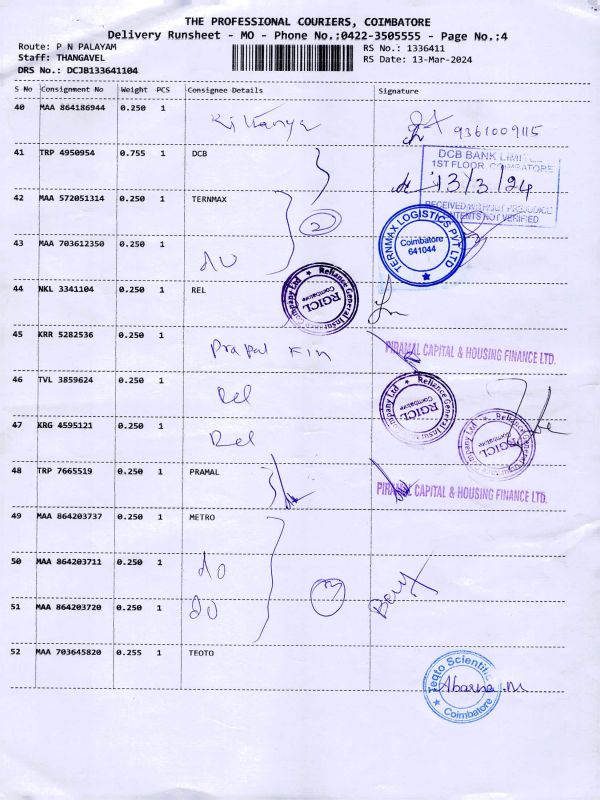 THE PROFESSIONAL COURIERS, COIMBATORE
Delivery Runsheet - MO - Phone No.:0422-3505555 - Page No.:4
Route: P N PALAYAM
RS No.: 1336411
Staff: THANGAVEL
RS Date: 13-Mar-2024
DRS No.: DCJB133641104
S No Consignment No Weight PCS Consignee Details Signature
40 MAA 864186944 0.250 1 9361009115
41 TRP 4950954 0.755 1 DCB
DCB BANK LIMITED
1ST FLOOR, COIMBATORE
13/3/24
RECEIVED WITHOUT PREJUDICE
CONTENTS NOT VERIFIED
42 MAA 572051314 0.250 1 TERNMAX
2
TERNMAX LOGISTICS PVT LTD
Coimbatore
641044
43 MAA 703612350 0.250 1 do
44 NKL 3341104 0.250 1 REL
Reliance General Insurance Company Ltd
RGICL
Coimbatore
45 KRR 5282536 0.250 1
PIRAMAL CAPITAL & HOUSING FINANCE LTD.
46 TVL 3859624 0.250 1 Rel
Reliance General Insurance Company Ltd
RGICL
Coimbatore
47 KRG 4595121 0.250 1 Rel
RGICL
Coimbatore
48 TRP 7665519 0.250 1 PRAMAL
PIRAMAL CAPITAL & HOUSING FINANCE LTD.
49 MAA 864203737 0.250 1 METRO
50 MAA 864203711 0.250 1 do
3
51 MAA 864203720 0.250 1 do
52 MAA 703645820 0.255 1 TEOTO
Teqto Scientific
Abarna.M
Coimbatore